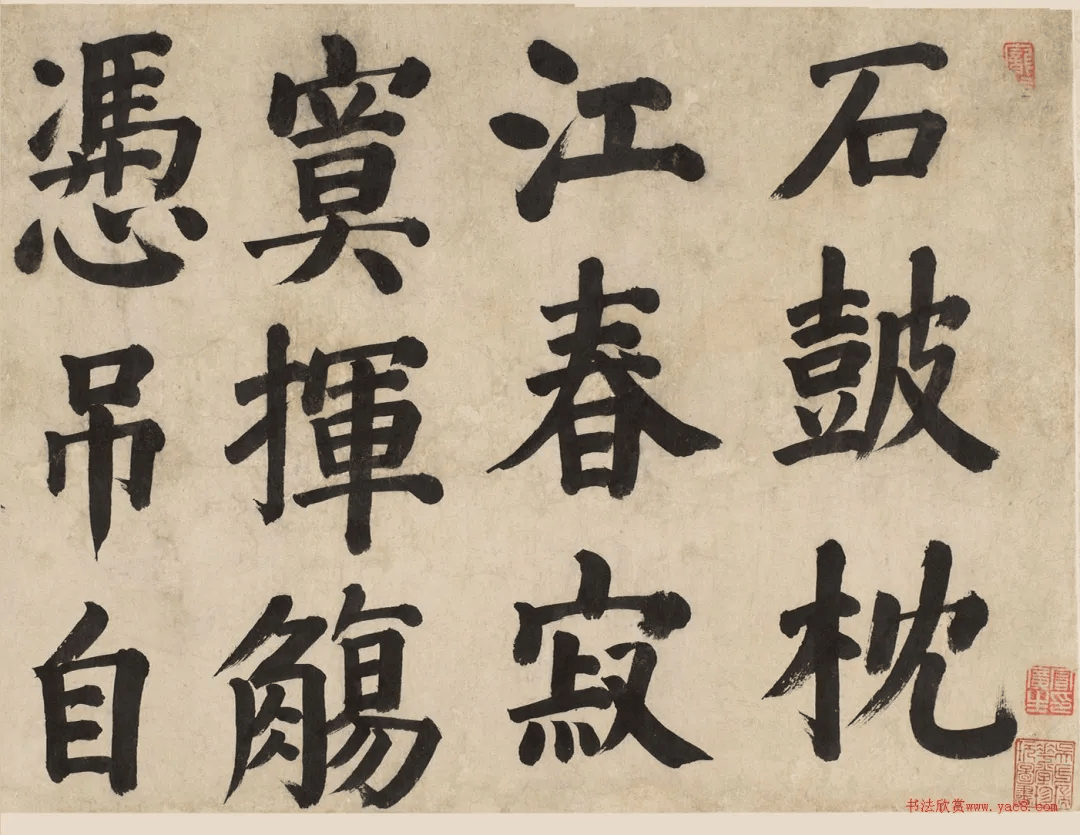 石皷枕
江春寂
寞揮觴
憑吊自
书法欣赏www.yac8.com